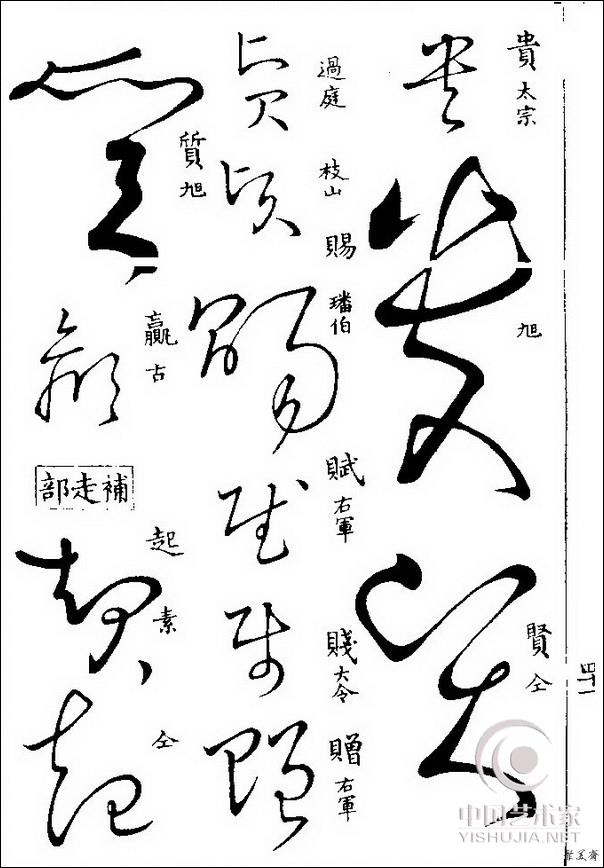 貴 太宗
旭
賢 仝
過庭
枝山
賜 璠伯
賦 右軍
賤 大令
贈 右軍
質 旭
贏 古
補走部
起 素
仝
四十一
中国艺术家
YISHUJIA.NET